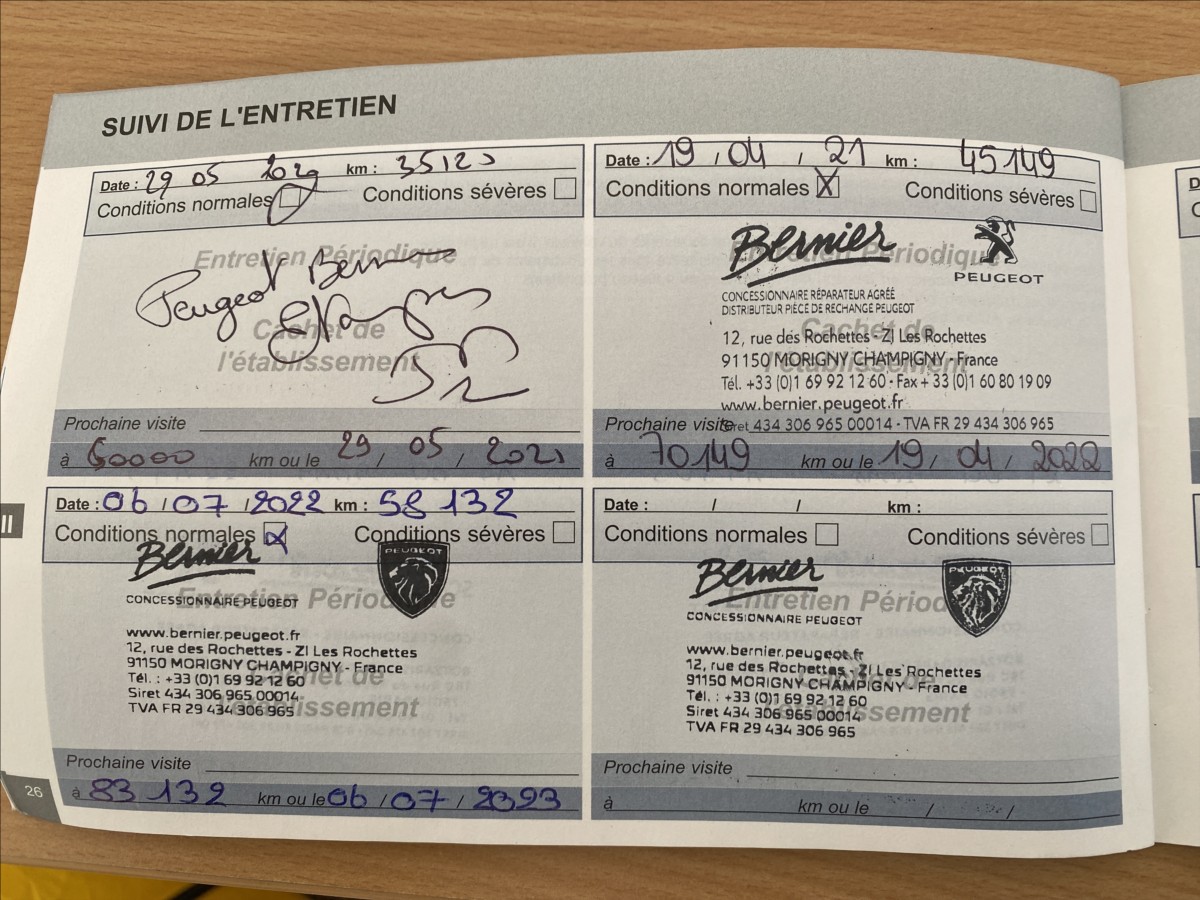 SUIVI DE L'ENTRETIEN
Date : 29 05 2020 km : 35120
Conditions normales Conditions sévères
Entretien Périodique
Peugeot Bernier
Cachet de
Etampes
l'établissement
Prochaine visite
à 60000 km ou le 29 / 05 / 2021
Date : 19 / 04 / 21 km : 45149
Conditions normales X Conditions sévères
Entretien Périodique
Bernier
PEUGEOT
CONCESSIONNAIRE RÉPARATEUR AGRÉÉ
DISTRIBUTEUR PIÈCE DE RECHANGE PEUGEOT
Cachet de
12, rue des Rochettes - ZI Les Rochettes
l'établissement
91150 MORIGNY CHAMPIGNY - France
Tél. +33 (0)1 69 92 12 60 - Fax + 33 (0)1 60 80 19 09
www.bernier.peugeot.fr
Prochaine visite
Siret 434 306 965 00014 - TVA FR 29 434 306 965
à 70149 km ou le 19 / 04 / 2022
Date : 06 / 07 / 2022 km : 58 132
Conditions normales X Conditions sévères
Bernier
PEUGEOT
Entretien Périodique
CONCESSIONNAIRE PEUGEOT
www.bernier.peugeot.fr
12, rue des Rochettes - ZI Les Rochettes
91150 MORIGNY CHAMPIGNY - France
Cachet de
Tél. : +33 (0)1 69 92 12 60
Siret 434 306 965 00014
l'établissement
TVA FR 29 434 306 965
Prochaine visite
à 83 132 km ou le 06 / 07 / 2023
Date : / / km :
Conditions normales Conditions sévères
Bernier
PEUGEOT
Entretien Périod
CONCESSIONNAIRE PEUGEOT
www.bernier.peugeot.fr
12, rue des Rochettes - ZI Les Rochettes
91150 MORIGNY CHAMPIGNY - France
Cachet de
Tél. : +33 (0)1 69 92 12 60
Siret 434 306 965 00014
l'établissement
TVA FR 29 434 306 965
Prochaine visite
à km ou le / /
26
II